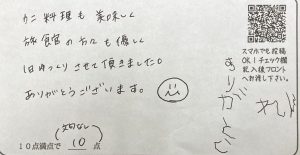 カニ料理も美味しく
旅館の方々も優しく
1日ゆっくりさせて頂きました。
ありがとうございます。
(文句なし)
10点満点で 10 点
スマホでも投稿
OK!チェック欄
記入後フロント
へお渡し下さい。
ありがとう